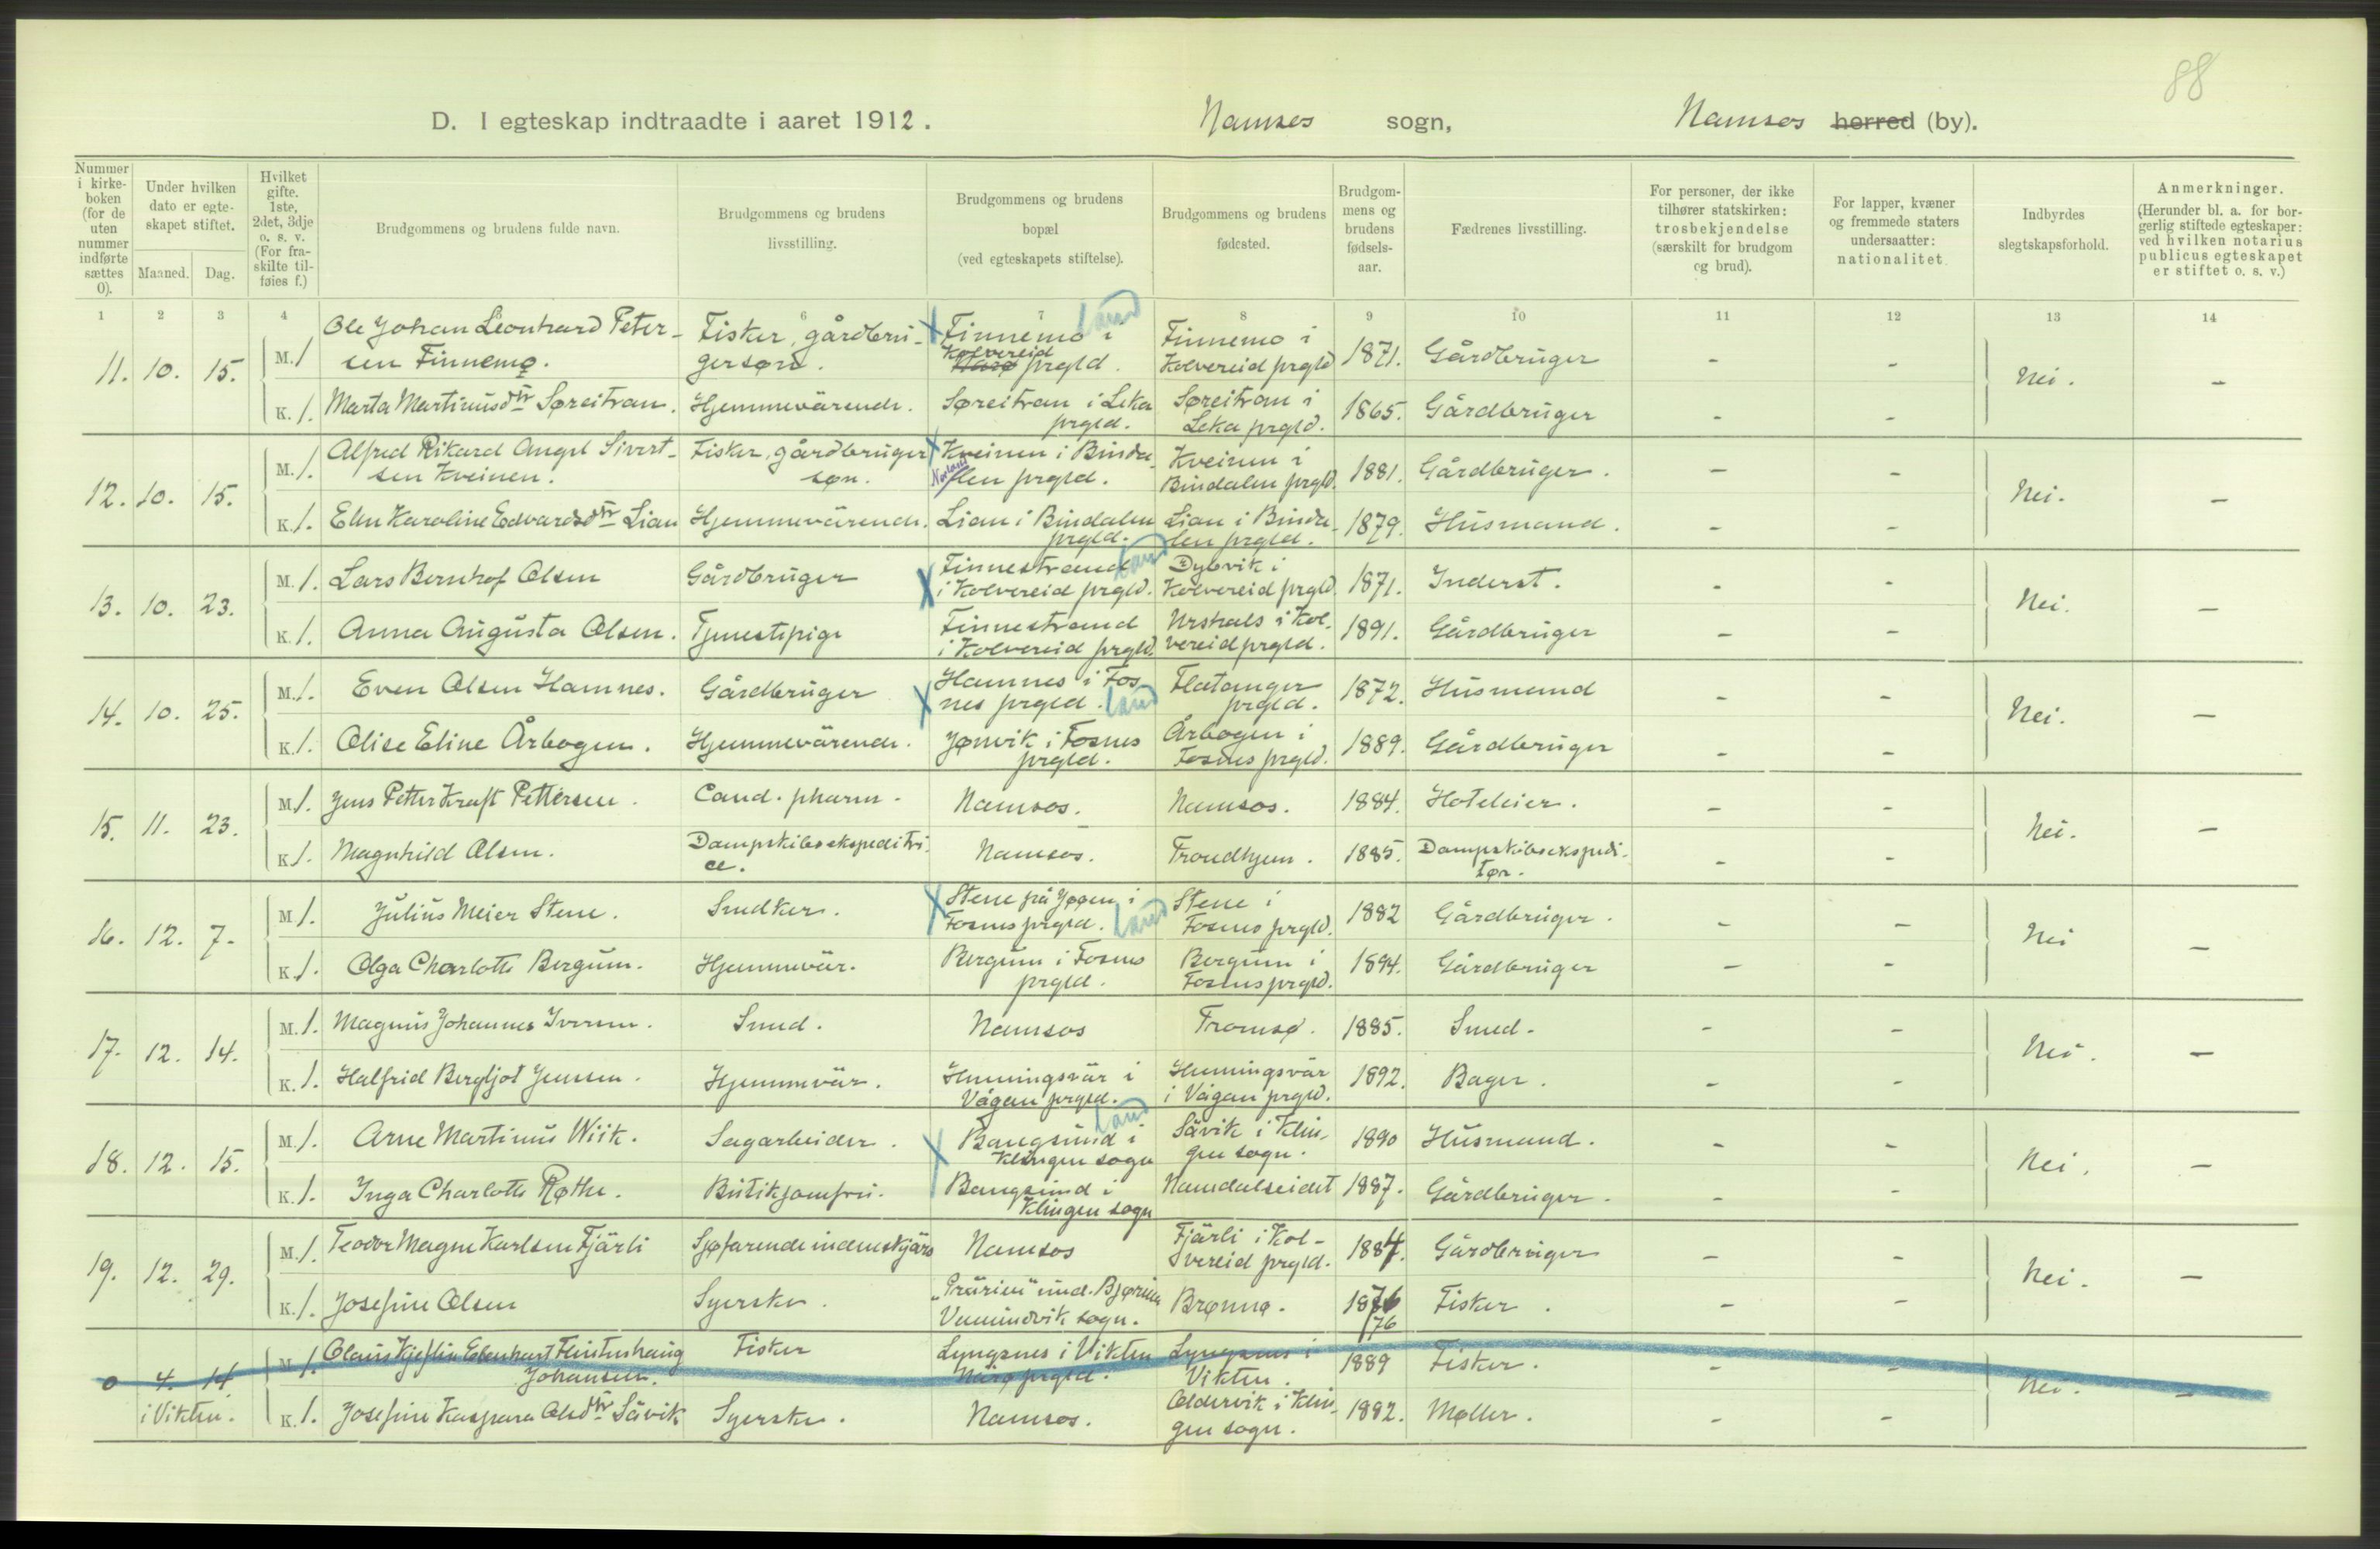 88
D. I egteskap indtraadte i aaret 1912. Namsos sogn, Namsos herred (by).
Nummer i kirkeboken (for de uten nummer indførte sættes 0).
Under hvilken dato er egteskapet stiftet.
Maaned. Dag.
Hvilket gifte. 1ste, 2det, 3dje o. s. v. (For fraskilte tilføies f.)
Brudgommens og brudens fulde navn.
Brudgommens og brudens livsstilling.
Brudgommens og brudens bopæl (ved egteskapets stiftelse).
Brudgommens og brudens fødested.
Brudgommens og brudens fødselsaar.
Fædrenes livsstilling.
For personer, der ikke tilhører statskirken: trosbekjendelse (særskilt for brudgom og brud).
For lapper, kvæner og fremmede staters undersaatter: nationalitet.
Indbyrdes slegtskapsforhold.
Anmerkninger. (Herunder bl. a. for borgerlig stiftede egteskaper: ved hvilken notarius publicus egteskapet er stiftet o. s. v.)
1 2 3 4 6 7 8 9 10 11 12 13 14
11. 10. 15. M. 1 Ole Johan Leonhard Petersen Finnemo. Fisker, gårdbrugersøn. Finnemo i Kolvereid Nærø prgld. Land Finnemo i Kolvereid prgld 1871. Gårdbruger - - Nei. -
K. 1. Marta Martinusdtr Søreitran. Hjemmeværende. Søreitran i Leka prgld. Søreitran i Leka prgld. 1865. Gårdbruger - -
12. 10. 15. M. 1. Alfred Rikard Angel Sivertsen Kveinen. Fisker, gårdbrugersøn. Kveinen i Bindalen prgld. Norland Kveinen i Bindalen prgld. 1881. Gårdbruger. - - Nei. -
K. 1. Elen Karoline Edvardsdtr Lian Hjemmeværende. Lian i Bindalen prgld. Lian i Bindalen prgld. 1879. Husmand. - -
13. 10. 23. M. 1. Lars Bernhof Olsen Gårdbruger Finnestrand i Kolvereid prgld. Land Dybvik i Kolvereid prgld. 1871. Inderst. - - Nei. -
K. 1. Anna Augusta Olsen. Tjenestepige Finnestrand i Kolvereid prgld. Urstals i Kolvereid prgld. 1891. Gårdbruger - -
14. 10. 25. M. 1. Even Olsen Hamnes. Gårdbruger Hamnes i Fosnes prgld. Land Flatanger prgld. 1872. Husmand - - Nei. -
K. 1. Olise Eline Årbogen. Hjemmeværende. Jønvik i Fosnes prgld. Årbogen i Fosnes prgld. 1889. Gårdbruger - -
15. 11. 23. M. 1. Jens Petter Kraft Pettersen. Cand. pharm. Namsos. Namsos. 1884. Hoteleier. - - Nei. -
K. 1. Magnhild Olsen. Dampskibsekspeditrice. Namsos. Trondhjem. 1885. Dampskibsekspeditør. - -
16. 12. 7. M. 1. Julius Meier Stene. Snedker. Stene på Jøøen i Fosnes prgld. Land Stene i Fosnes prgld. 1882 Gårdbruger. - - Nei -
K. 1. Olga Charlotte Bergum. Hjemmevær. Bergum i Fosnes prgld. Bergum i Fosnes prgld. 1894. Gårdbruger - -
17. 12. 14. M. 1. Magnus Johannes Iversen. Smed. Namsos Tromsø. 1885. Smed. - - Nei. -
K. 1. Halfrid Bergljot Jenssen. Hjemmevær. Henningsvär i Vågan prgld. Henningsvär i Vågan prgld. 1892. Bager. - -
18. 12. 15. M. 1. Arne Martinus Wiik. Sagarbeider. Bangsund i Klingen sogn Land Sävik i Klingen sogn. 1890 Husmand. - - Nei. -
K. 1. Inga Charlotte Røthe. Butikjomfru. Bangsund i Klingen sogn Namdalseidet 1887. Gårdbruger. - -
19. 12. 29. M. 1. Teodor Magne Karlsen Fjärli Sjøfarende indenskjärs Namsos Fjärli i Kolvereid prgld. 1884. Gårdbruger - - Nei. -
K. 1. Josefine Olsen Syerske. "Prärien" Vemundvik sogn. Brønnø. 1876 76 Fisker. - -
0 4. 14. i Vikten. M. 1. Johansen. Fisker Lyngsnes i Vikten Nærø prgld. Lyngsnes i Vikten. 1889 Fisker. - - Nei. -
K. 1. Josefine Kaspara Olsdtr Sävik Syerske. Namsos. Oldervik i Klingen sogn. 1882. Møller. - -